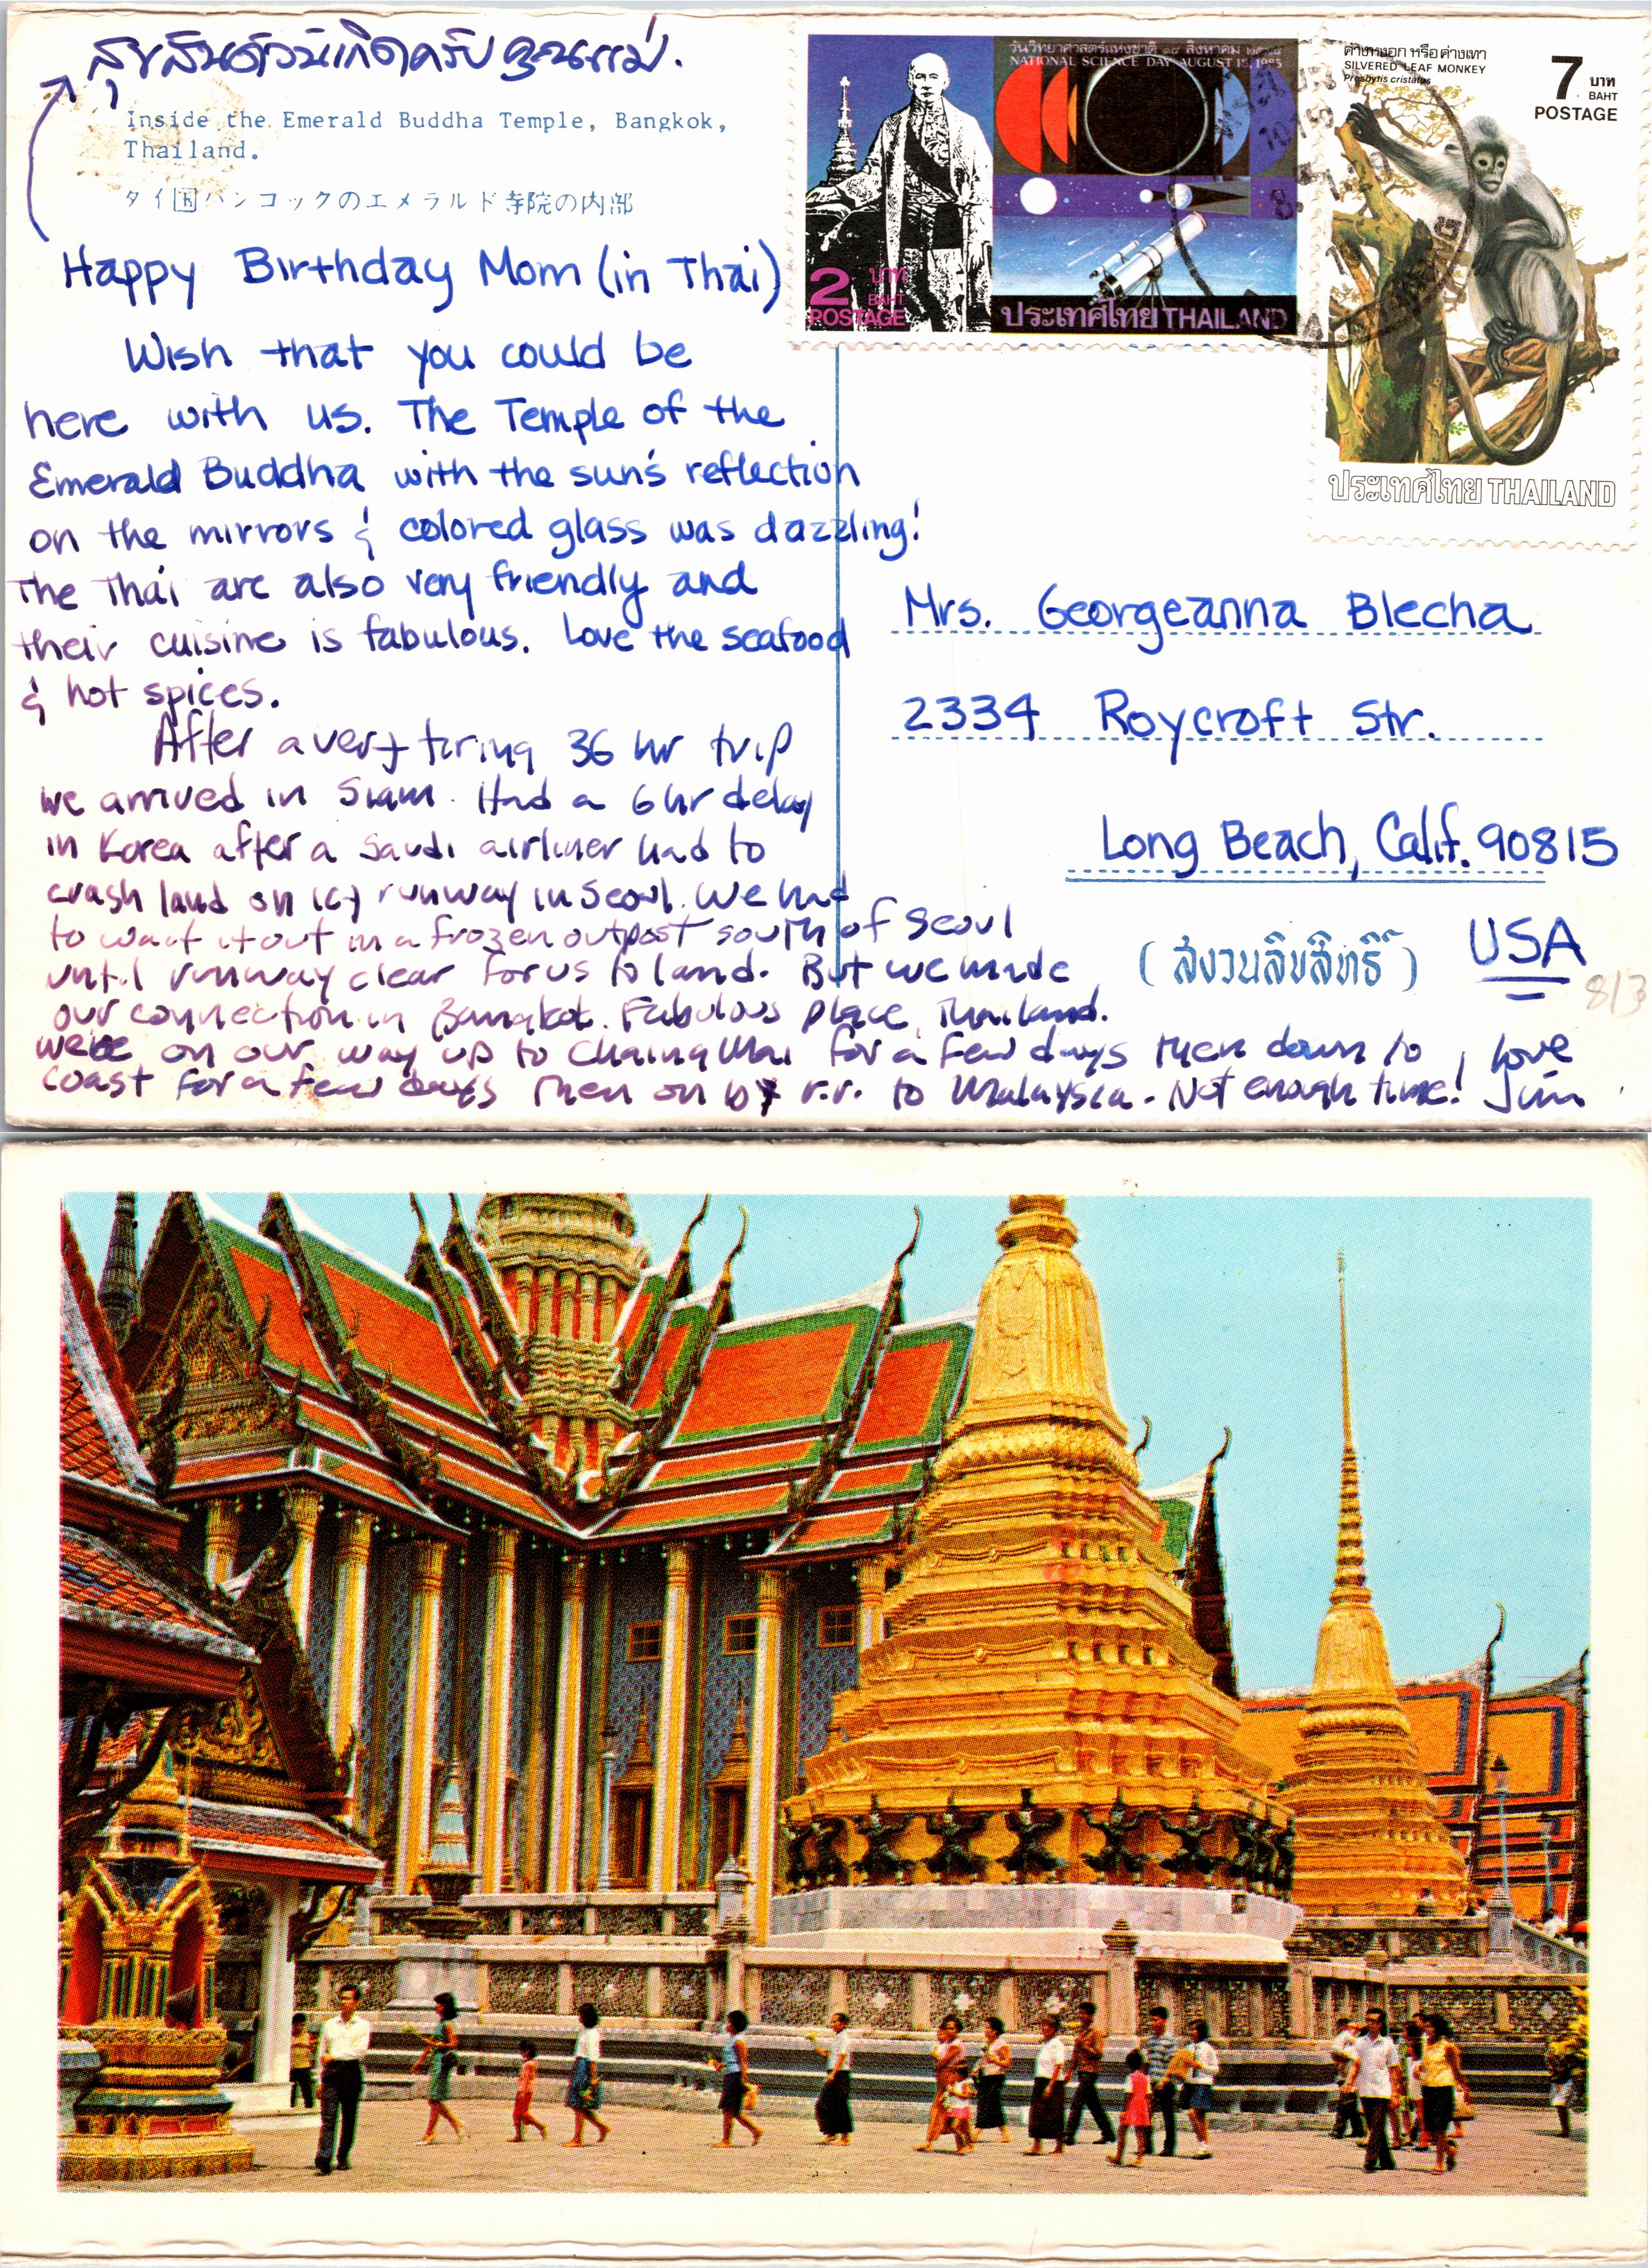 สุขสันต์วันเกิดครับ คุณแม่.
Inside the Emerald Buddha Temple, Bangkok,
Thailand.
タイ国バンコックのエメラルド寺院の内部
Happy Birthday Mom (in Thai)
Wish that you could be
here with us. The Temple of the
Emerald Buddha with the sun's reflection
on the mirrors & colored glass was dazzling!
The Thai are also very friendly and
their cuisine is fabulous. Love the seafood
& hot spices.
After a very tiring 36 hr trip
we arrived in Siam. Had a 6 hr delay
in Korea after a Saudi airliner had to
crash land on icy runway in Seoul. We had
to wait it out in a frozen outpost south of Seoul
until runway clear for us to land. But we made
our connection in Bangkok. Fabulous place, Thailand.
We're on our way up to Chaing Mai for a few days then down to
coast for a few days then on by r.r. to Malaysia. Not enough time!
Love
Jim
วันวิทยาศาสตร์แห่งชาติ ๑๘ สิงหาคม ๒๕๒๘
NATIONAL SCIENCE DAY AUGUST 18, 1985
2 บาท
BAHT
POSTAGE
ประเทศไทย THAILAND
ค่างหงอก หรือ ค่างเทา
SILVERED LEAF MONKEY
Presbytis cristatus
7 บาท
BAHT
POSTAGE
ประเทศไทย THAILAND
Mrs. Georgeanna Blecha
2334 Roycroft Str.
Long Beach, Calif. 90815
USA
(สงวนลิขสิทธิ์)
813